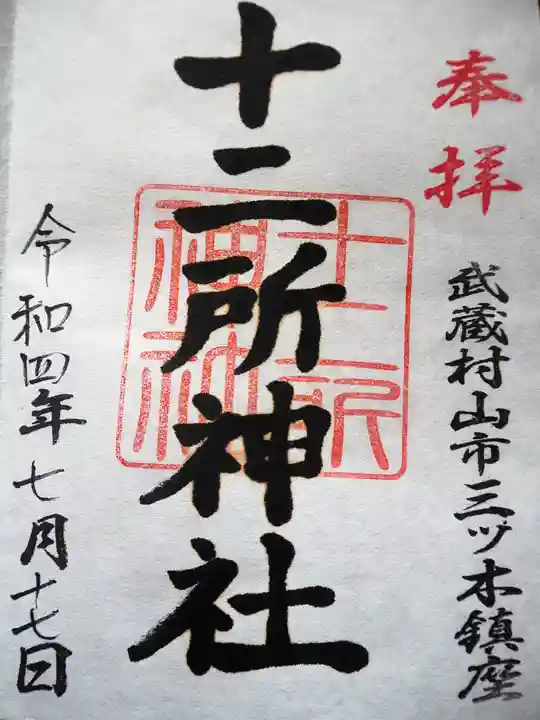 奉拝
武蔵村山市三ツ木鎮座
十二所神社
十二所
神社
令和四年七月十七日